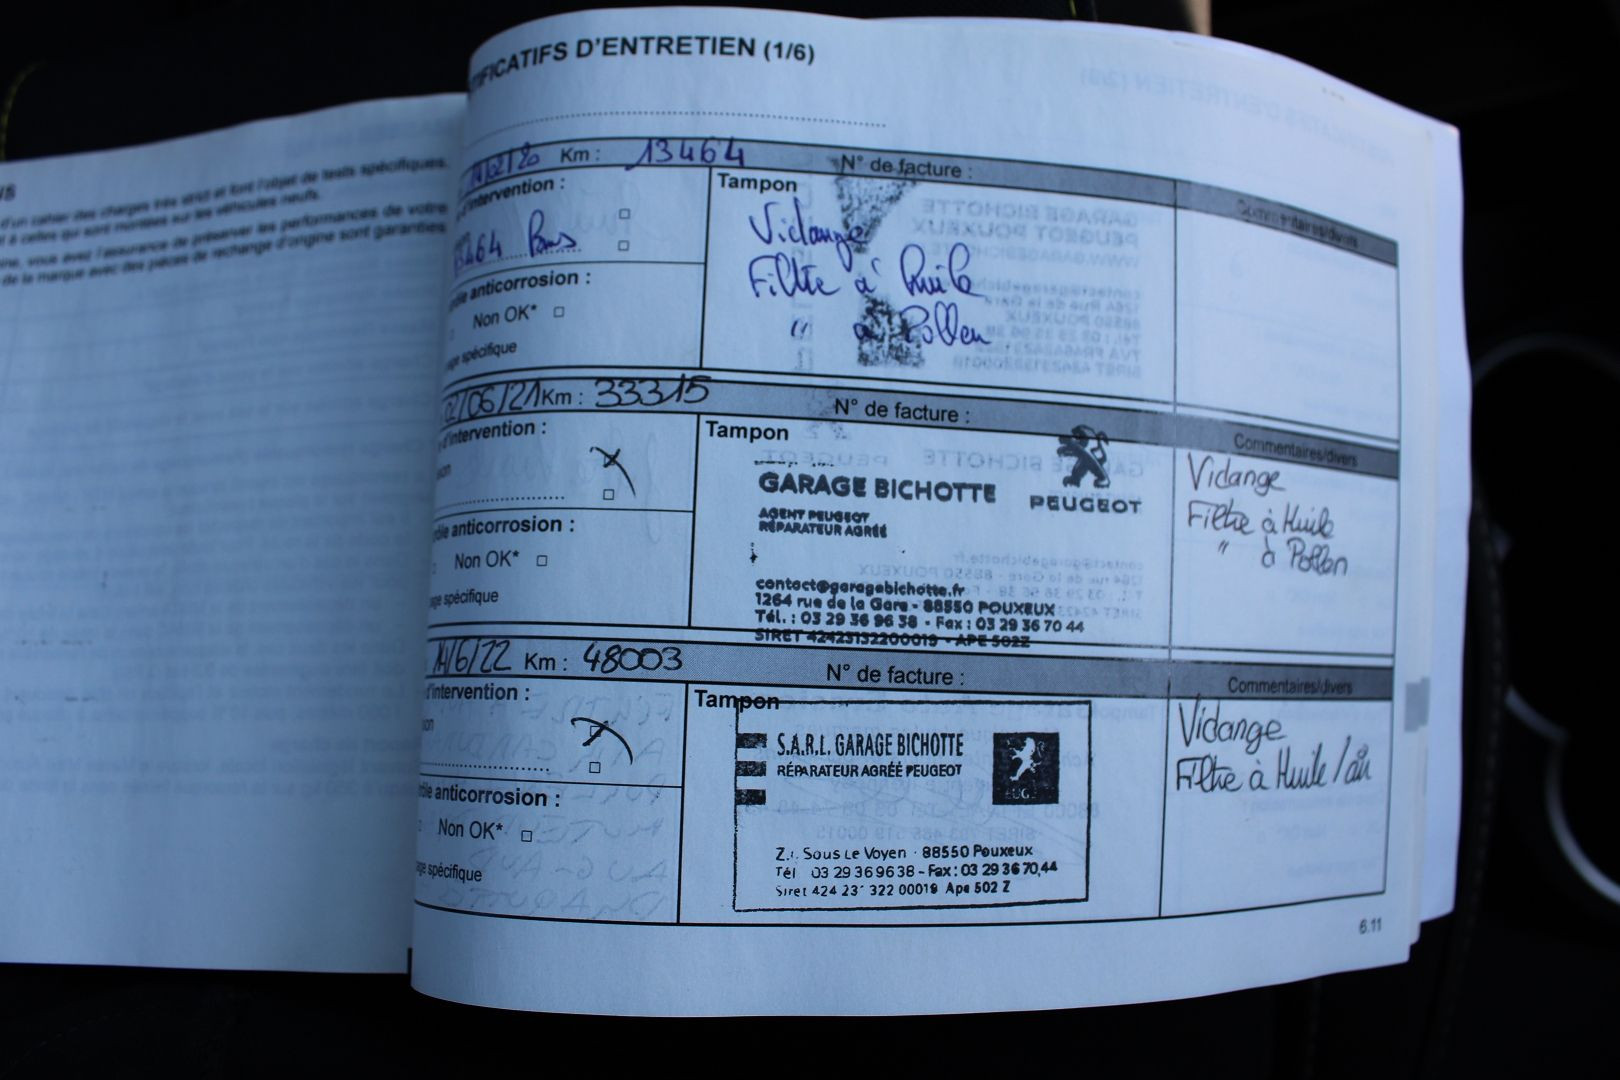 d'un cahier des charges très strict et font l'objet de tests spécifiques.
à celles qui sont montées sur les véhicules neufs.
vous avez l'assurance de préserver les performances de votre
de la marque avec des pièces de rechange d'origine sont garanties
TIFICATIFS D'ENTRETIEN (1/6)
14/02/20 Km : 13464 N° de facture :
Commentaires/divers
d'intervention :
Tampon
13464 Kms
Vidange
Filtre à Huile
" à Pollen
anticorrosion :
Non OK*
spécifique
02/06/21 Km : 33315 N° de facture :
Commentaires/divers
d'intervention :
Tampon
GARAGE BICHOTTE
PEUGEOT
AGENT PEUGEOT
RÉPARATEUR AGRÉÉ
contact@garagebichotte.fr
1264 rue de la Gare - 88550 POUXEUX
Tél. : 03 29 36 96 38 - Fax : 03 29 36 70 44
SIRET 42423132200019 - APE 502Z
Vidange
Filtre à Huile
" à Pollen
anticorrosion :
Non OK*
spécifique
14/6/22 Km : 48003 N° de facture :
Commentaires/divers
d'intervention :
Tampon
S.A.R.L. GARAGE BICHOTTE
RÉPARATEUR AGRÉÉ PEUGEOT
Z.I. Sous Le Voyen - 88550 Pouxeux
Tél 03 29 36 96 38 - Fax : 03 29 36 70,44
Siret 424 231 322 00019 Ape 502 Z
Vidange
Filtre à Huile / air
anticorrosion :
Non OK*
spécifique
6.11